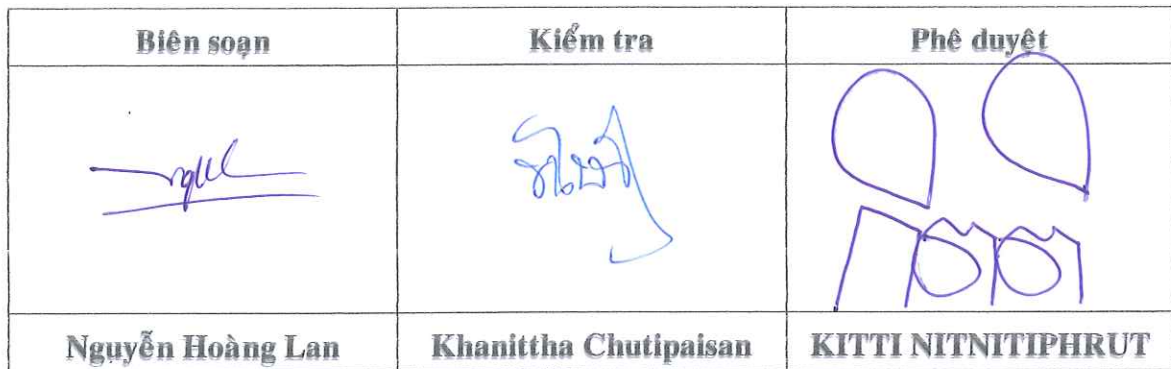 Biên soạn Kiểm tra Phê duyệt
Nguyễn Hoàng Lan Khanittha Chutipaisan KITTI NITNITIPHRUT